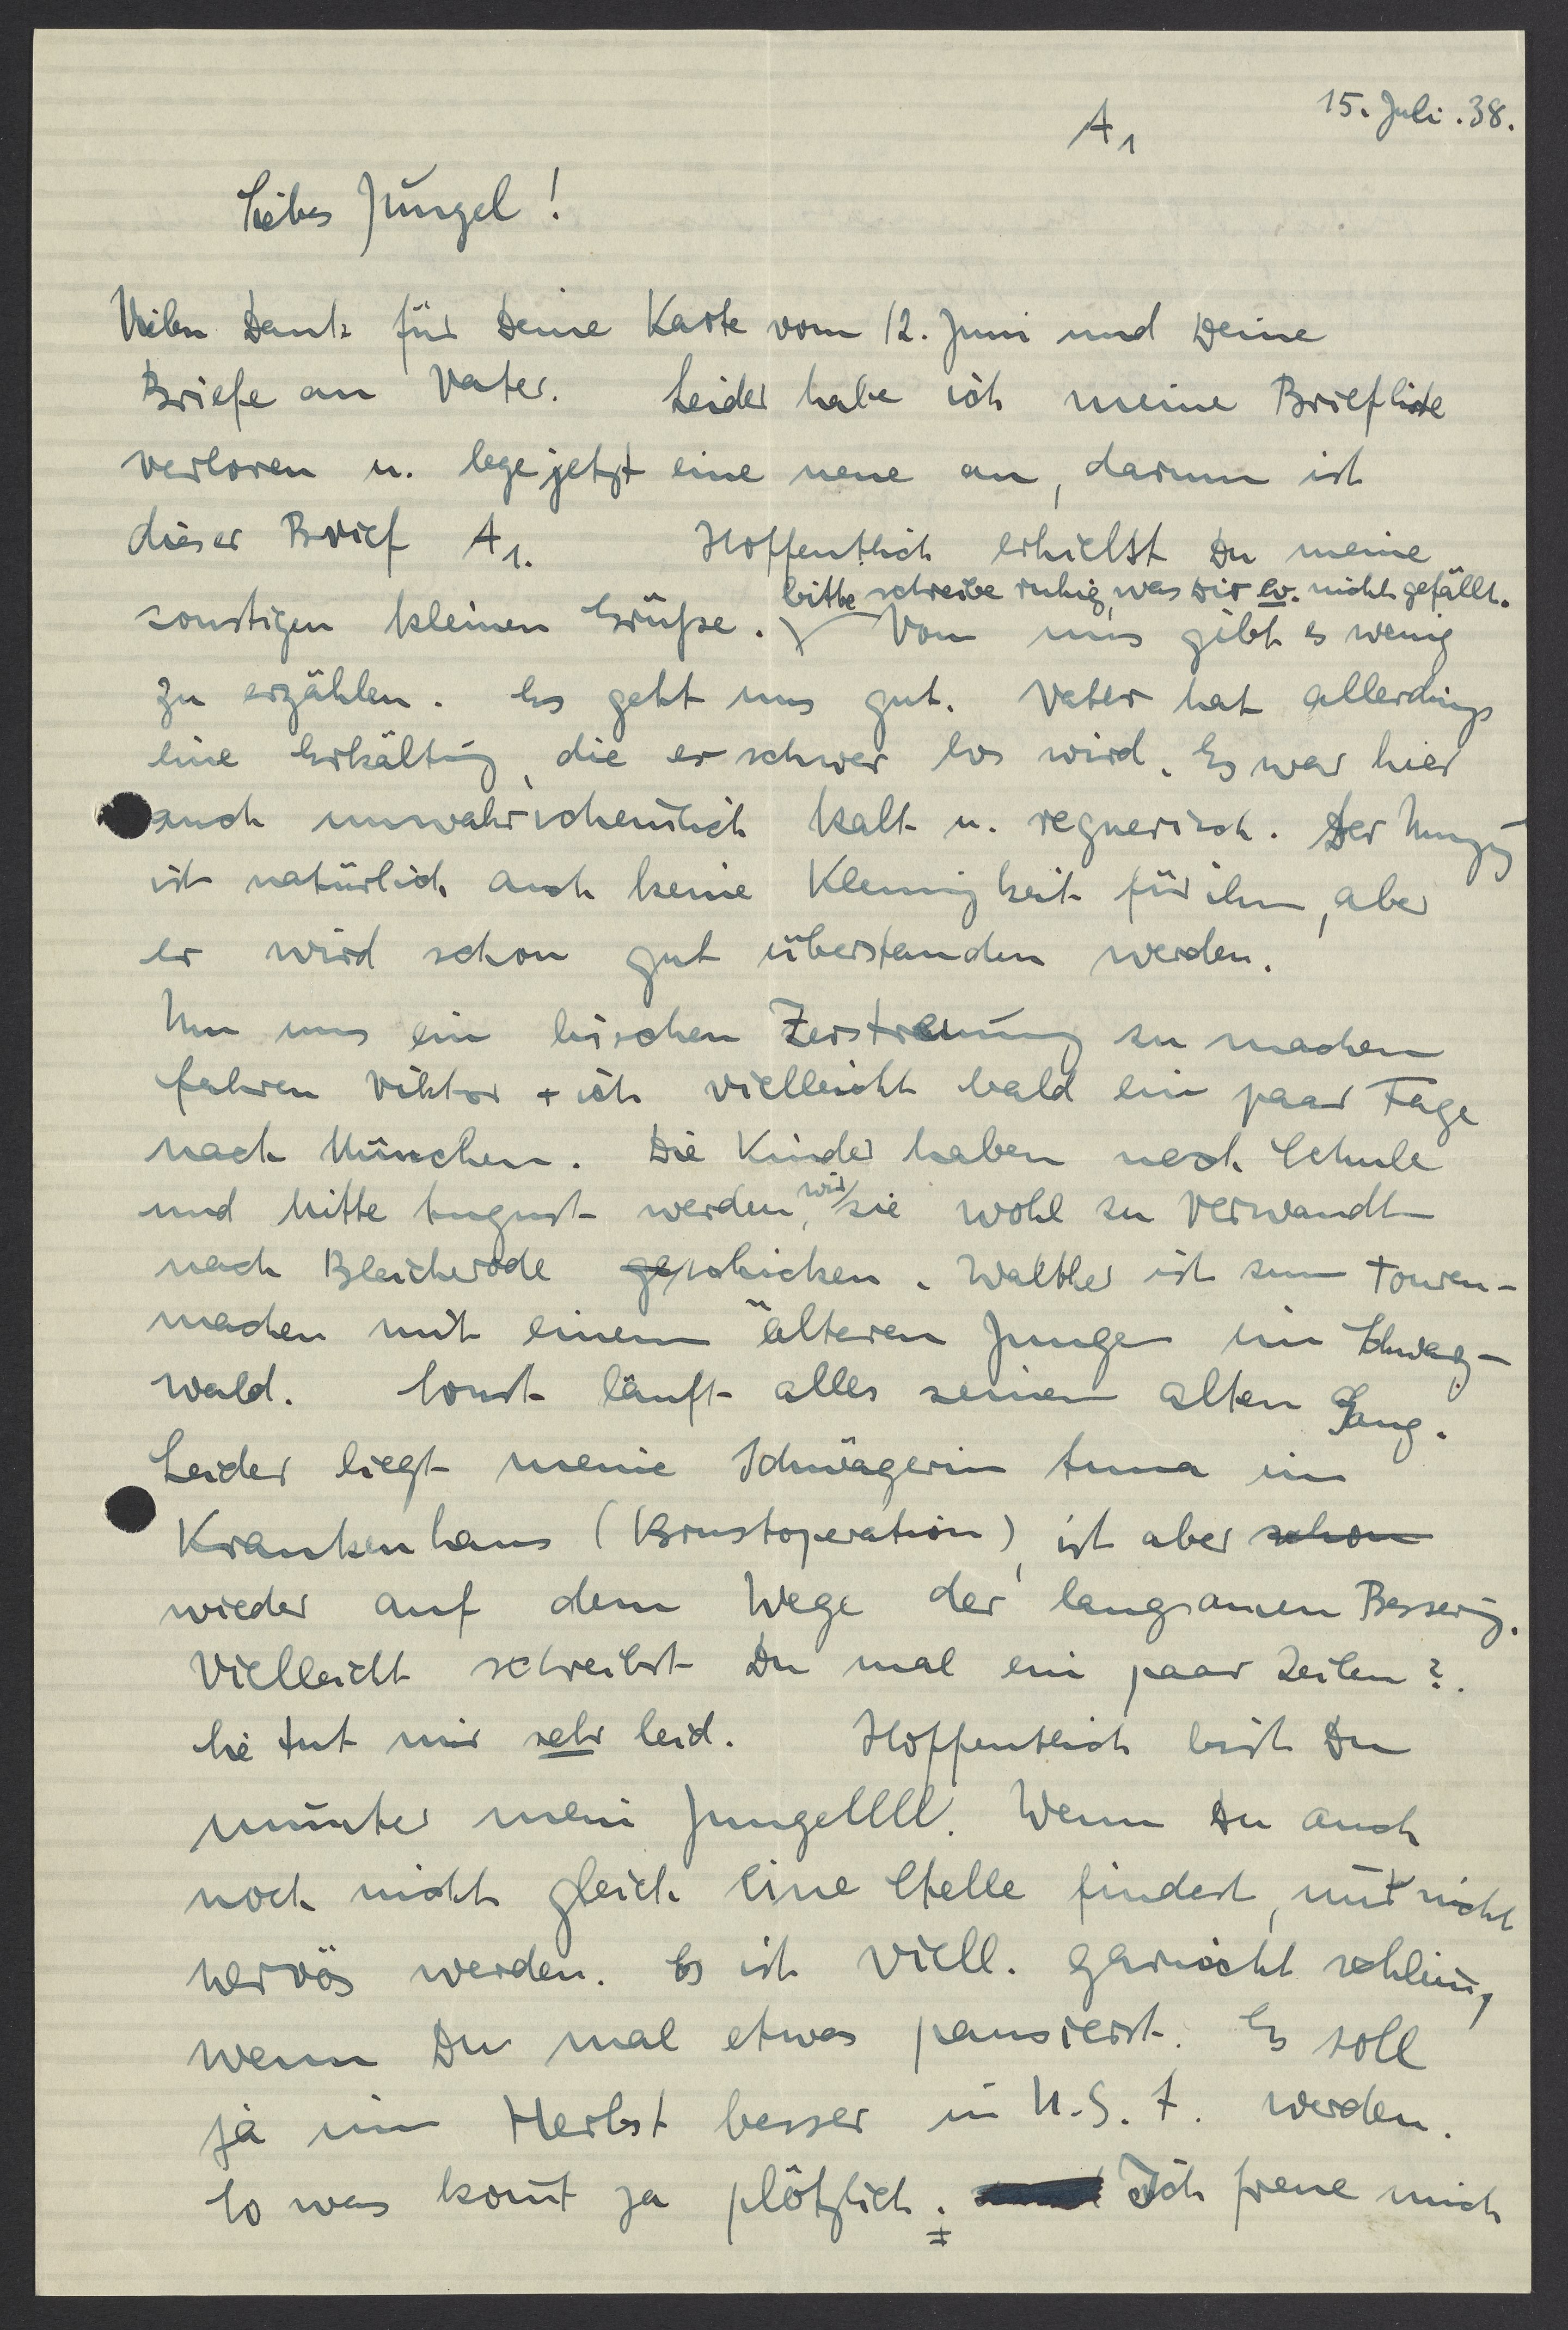 A1
15. Juli. 38.
Liebes Jüngel!
Vielen Dank für Deine Karte vom 12. Juni und Deine
Briefe an Vater. Leider habe ich meine Briefliste
verloren u. lege jetzt eine neue an, darum ist
dieser Brief A1. Hoffentlich erhielst Du meine
bitte schreibe ruhig, was Dir ev. nicht gefällt.
sonstigen kleinen Grüße. Von uns gibt es wenig
zu erzählen. Es geht uns gut. Vater hat allerdings
eine Erkältung, die er schwer los wird. Es war hier
auch unwahrscheinlich kalt u. regnerisch. Der Umzug
ist natürlich auch keine Kleinigkeit für ihn, aber
er wird schon gut überstanden werden.
Um uns ein bischen Zerstreuung zu machen
fahren Viktor + ich vielleicht bald ein paar Tage
nach München. Die Kinder haben noch Schule
und Mitte August werden wir sie wohl zu Verwandten
nach Bleicherode schicken. Walther ist zum Touren-
machen mit einem älteren Jungen im Schwarz-
wald. Sonst läuft alles seinen alten Gang.
Leider liegt meine Schwägerin Anna im
Krankenhaus (Brustoperation), ist aber schon
wieder auf dem Wege der langsamen Besserung.
Vielleicht schreibst Du mal ein paar Zeilen?
Sie tut mir sehr leid. Hoffentlich bist Du
munter mein Jungellll. Wenn Du auch
noch nicht gleich eine Stelle findest, nur nicht
nervös werden. Es ist viell. garnicht schlimm,
wenn Du mal etwas pausierst. Es soll
ja im Herbst besser in U.S.A. werden.
So was kommt ja plötzlich. Ich freue mich